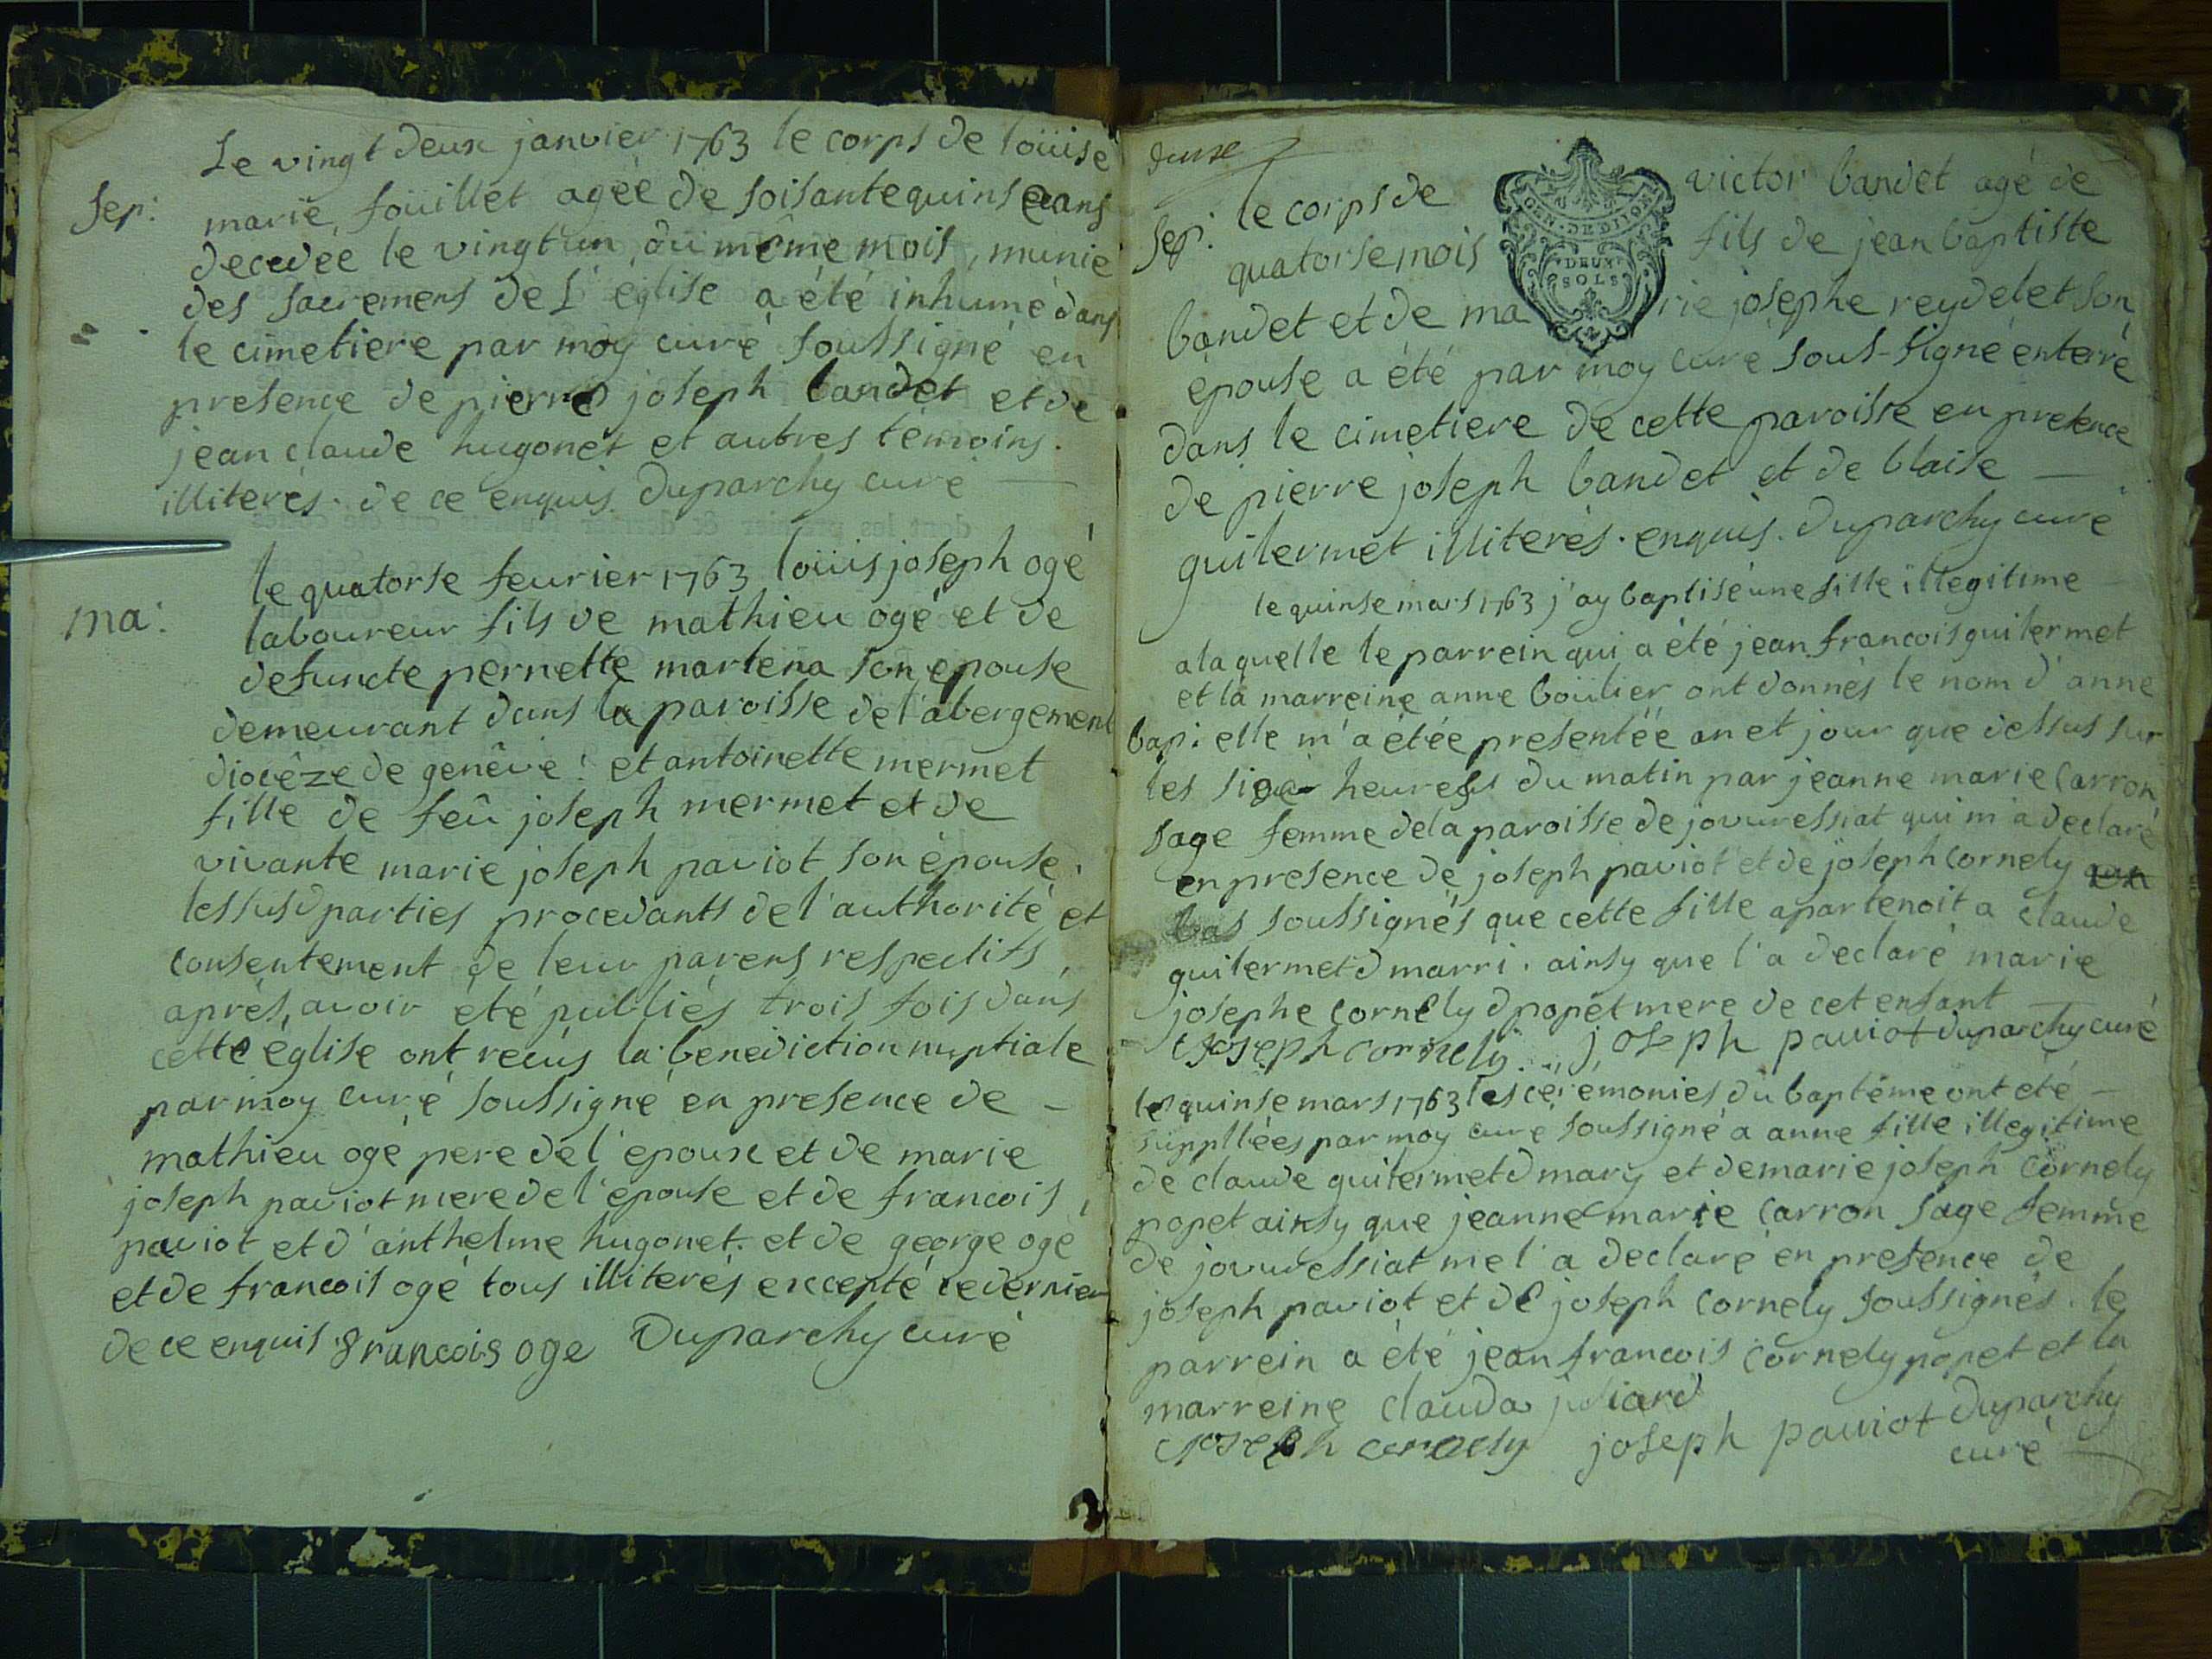 Le vingt deux janvier 1763 le corps de loüise
Sep: marie foüillet agée de soisante quinse ans
decedée le vingt un du même mois, munie
des sacremens de L'eglise a été inhumé dans
le cimetiere par moy curé soussigné en
presence de pierre joseph bandet et de
jean claude hugonet et autres temoins.
illiterés. de ce enquis Duparchy curé
le quatorse feurier 1763 loüis joseph ogé
ma: laboureur fils de mathieu ogé et de
defuncte pernette martena son epouse
demeurant dans la paroisse de l'abergement
diocêze de genêve: et antoinette mermet
fille de feû joseph mermet et de
vivante marie joseph paviot son épouse.
les susd parties procedants de l'authorité et
consentement de leur parens respectifs,
aprés, avoir été publiés trois fois dans
cette église ont recus la benediction nuptiale
par moy curé soussigné en presence de
mathieu ogé pere de l'epoux et de marie
joseph paviot mere de l'epouse et de francois,
paviot et d'anthelme hugonet. et de george ogé
et de francois ogé tous illiterés excepté ce dernier
de ce enquis. francois oge Duparchy curé
deuse
Sep: le corps de victor bandet agé de
quatorse mois fils de jean baptiste
GEN. DE DIJON
DEUX
SOLS
bandet et de marie josephe reydelet son
épouse a été par moy curé sous-signé enterré
dans le cimetiere de cette paroisse en presence
de pierre joseph bandet et de blaise
guilermet illiterés. enquis. Duparchy curé
le quinse mars 1763 j'ay baptisé une fille illegitime
a laquelle le parrein qui a été jean francois guilermet
et la marreine anne boülier ont donnés le nom d'anne
bap: elle m'a étée presentée an et jour que dessus sur
les heures du matin par jeanne marie Carron
sage femme de la paroisse de jovuressiat qui m'a declaré
en presence de joseph paviot et de joseph Cornely
bas soussignés que cette fille apartenoit a claude
guilermet d marri. ainsy que l'a declaré marie
josephe Cornely d popet mere de cet enfant
joseph cornely joseph paviot Duparchy curé
le quinse mars 1763 les cérémonies du baptême ont eté
suppllées par moy curé soussigné a anne fille illegitime
de claude guilermet d mary et de marie joseph Cornely
popet ainsy que jeanne marie Carron sage femme
de jovuressiat me l'a declaré en presence de
joseph paviot et de joseph Cornely soussignés. le
parrein a été jean francois Cornely popet et la
marreine clauda juliard
joseph cornely joseph paviot Duparchy
curé